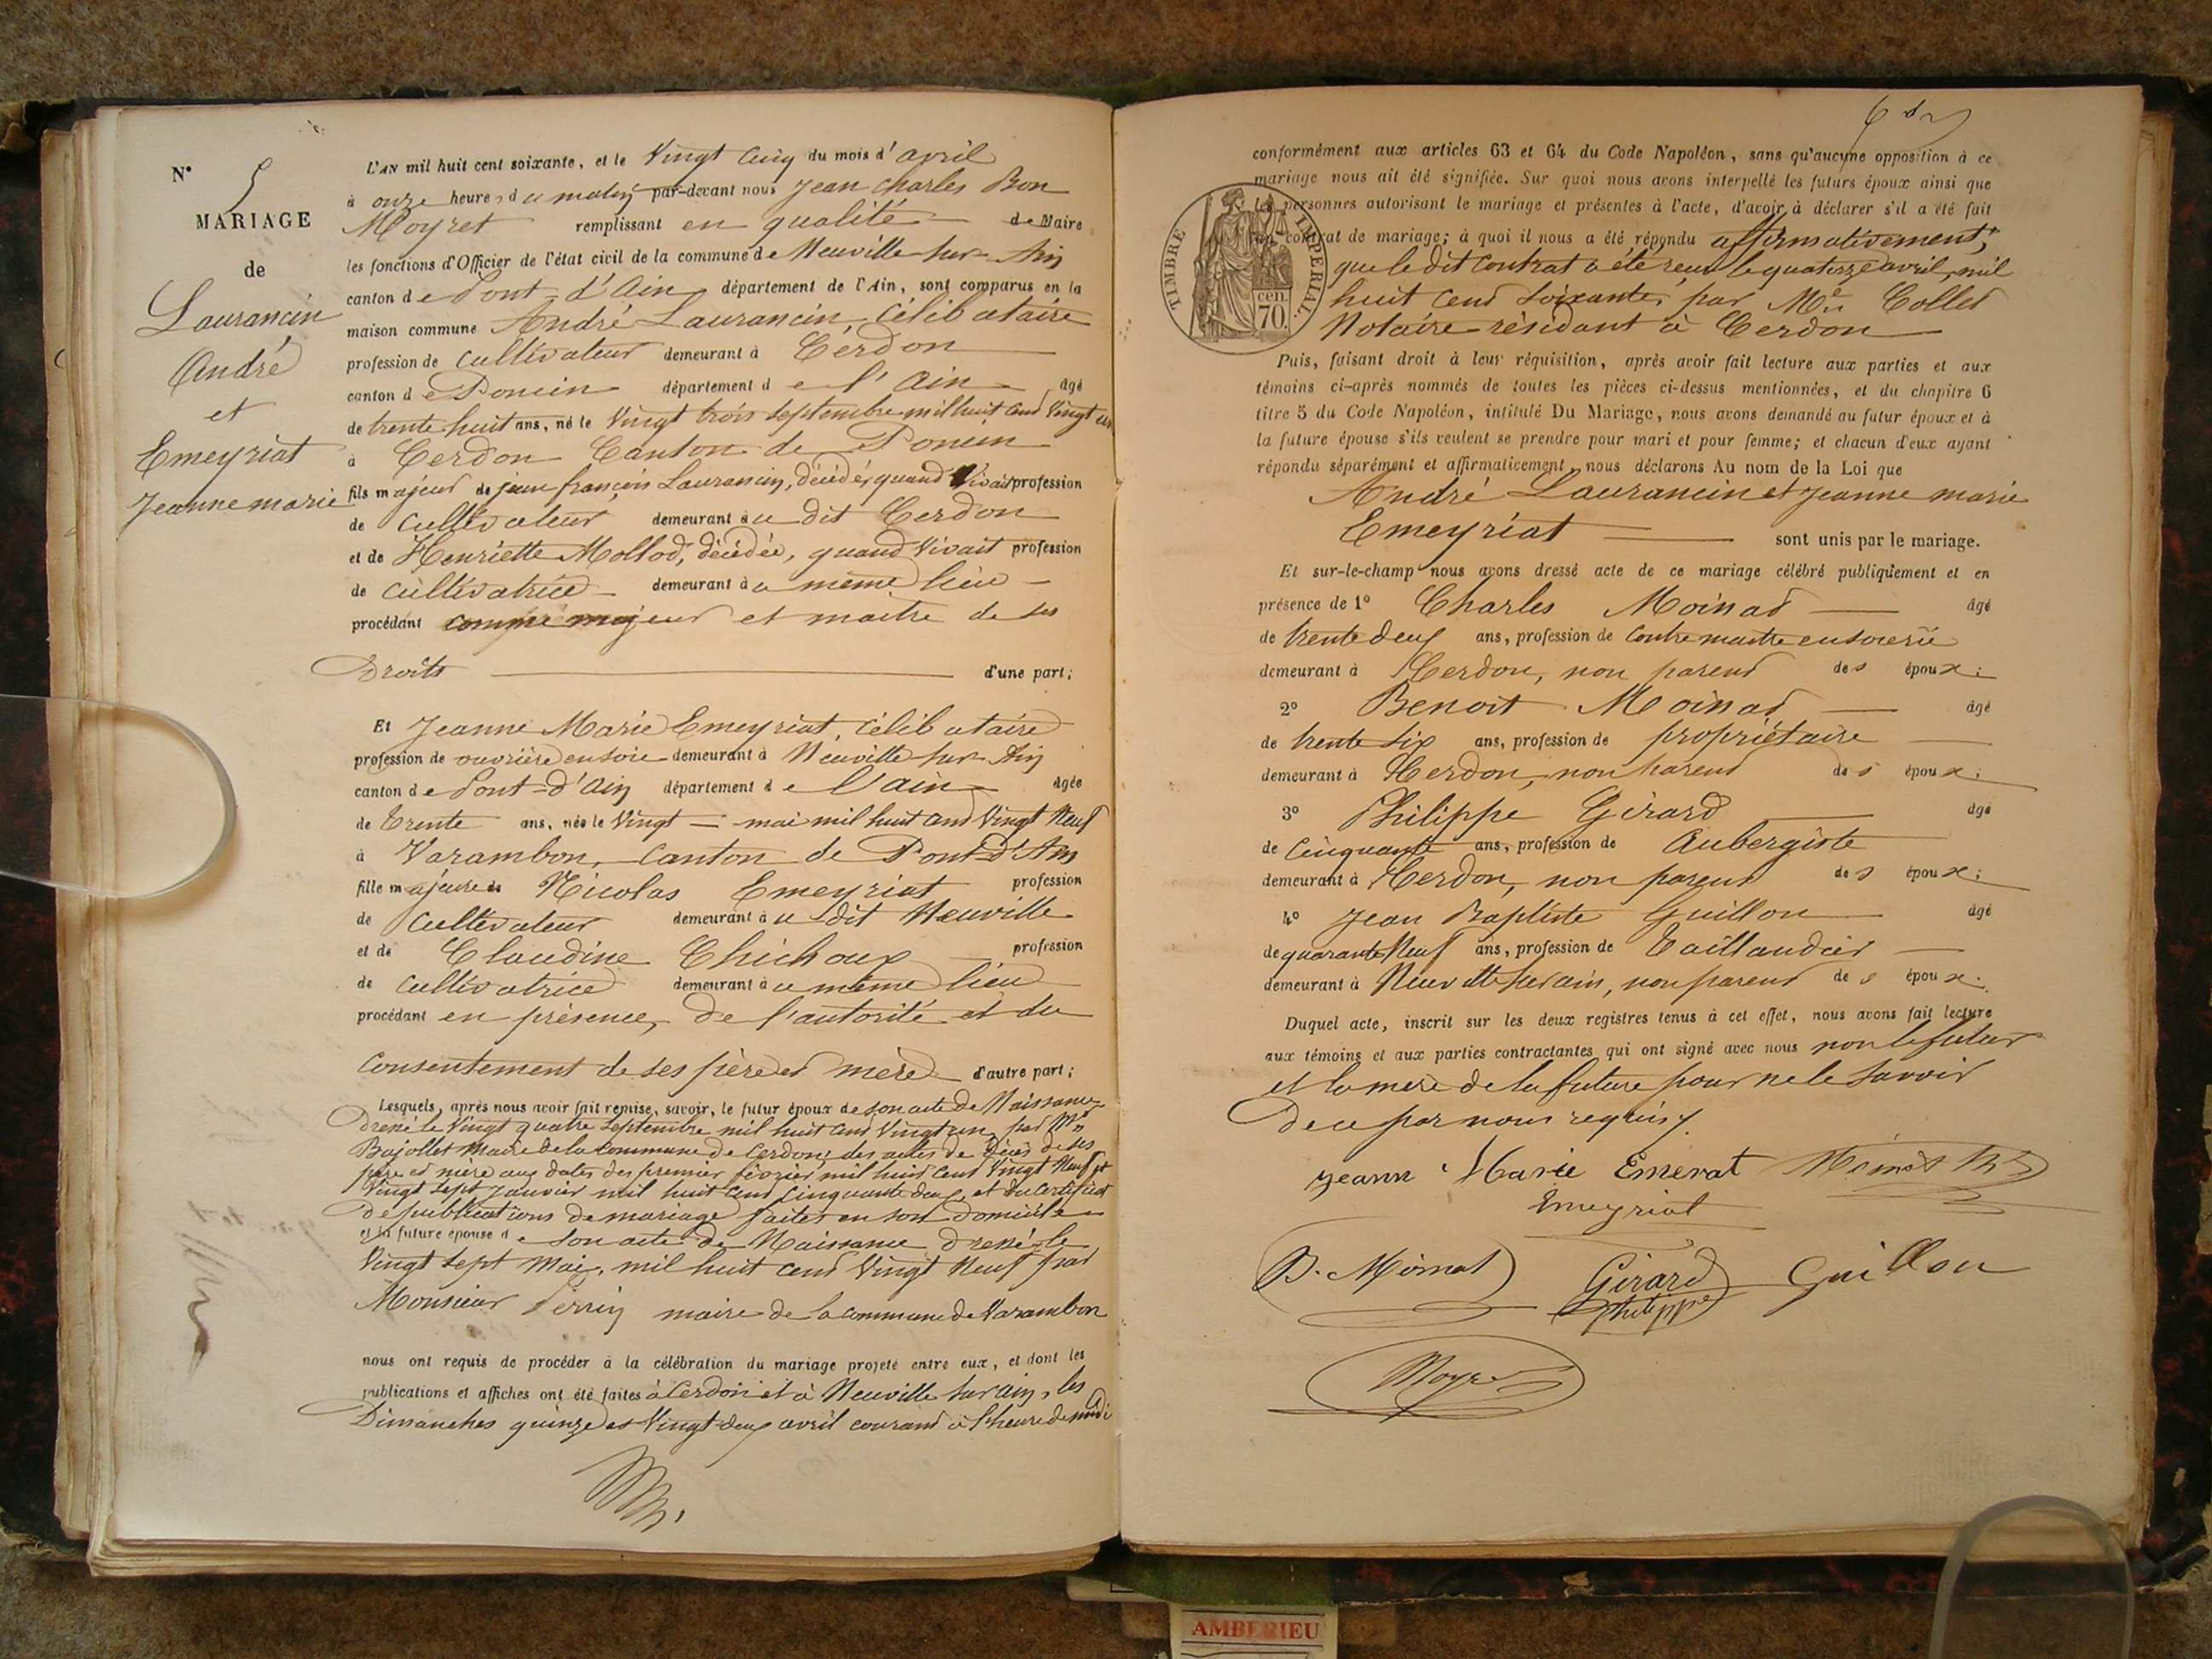 N° 5
MARIAGE
de
Laurancin
André
et
Emeyriat
Jeanne marie
L'AN mil huit cent soixante, et le Vingt Cinq du mois d'avril
à onze heures du matin par-devant nous Jean Charles Bon
Moyret remplissant en qualité de Maire
les fonctions d'Officier de l'état civil de la commune de Neuville sur Ain
canton de Pont-d'Ain département de l'Ain, sont comparus en la
maison commune André Laurancin, Célibataire
profession de Cultivateur demeurant à Cerdon
canton de Poncin département de l'Ain âgé
de trente huit ans, né le Vingt trois Septembre mil huit cent Vingt un
à Cerdon Canton de Poncin
fils majeur de jean françois Laurancin, décédé, quand Vivait profession
de Cultivateur demeurant au dit Cerdon
et de Henriette Mollod, décédée, quand Vivait profession
de Cultivatrice demeurant au même lieu
procédant comme majeur et maitre de ses
Droits d'une part;
Et Jeanne Marie Emeyriat, Célibataire
profession de ouvrière en soie demeurant à Neuville sur Ain
canton de Pont-d'Ain département de l'Ain âgée
de Trente ans, née le Vingt mai mil huit cent Vingt Neuf
à Varambon, Canton de Pont-d'Ain
fille majeure de Nicolas Emeyriat profession
de Cultivateur demeurant au dit Neuville
et de Claudine Chichoux profession
de Cultivatrice demeurant au même lieu
procédant en présence, de l'autorité et du
Consentement de ses père et mère d'autre part;
Lesquels, après nous avoir fait remise, savoir, le futur époux de son acte de Naissance
Dressé le Vingt quatre Septembre mil huit cent Vingt un, par Mr
Bajollet Maire de la Commune de Cerdon, des actes de Décès de ses
père et mère aux dates des premier février mil huit cent Vingt Neuf et
Vingt Sept Janvier mil huit cent Cinquante deux, et du Certificat
de publications de mariage faites en son domicile
et la future épouse de Son acte de Naissance Dressé le
Vingt Sept Mai, mil huit cent Vingt Neuf par
Monsieur Perrin maire de la Commune de Varambon
nous ont requis de procéder à la célébration du mariage projeté entre eux, et dont les
publications et affiches ont été faites à Cerdon et à Neuville sur Ain, les
Dimanches quinze et Vingt-deux avril courant à l'heure de midi
conformément aux articles 63 et 64 du Code Napoléon, sans qu'aucune opposition à ce
mariage nous ait été signifiée. Sur quoi nous avons interpellé les futurs époux ainsi que
les personnes autorisant le mariage et présentes à l'acte, d'avoir à déclarer s'il a été fait
un contrat de mariage; à quoi il nous a été répondu affirmativement,
que le dit Contrat a été reçu le quatorze avril, mil
huit cent Soixante, par Me Collet
Notaire résidant à Cerdon
TIMBRE IMPÉRIAL
70. cen.
Puis, faisant droit à leur réquisition, après avoir fait lecture aux parties et aux
témoins ci-après nommés de toutes les pièces ci-dessus mentionnées, et du chapitre 6
titre 5 du Code Napoléon, intitulé Du Mariage, nous avons demandé au futur époux et à
la future épouse s'ils veulent se prendre pour mari et pour femme; et chacun d'eux ayant
répondu séparément et affirmativement, nous déclarons Au nom de la Loi que
André Laurancin et Jeanne marie
Emeyriat sont unis par le mariage.
Et sur-le-champ nous avons dressé acte de ce mariage célébré publiquement et en
présence de 1° Charles Moinat âgé
de trente deux ans, profession de Contremaitre en soierie
demeurant à Cerdon, non parent des époux;
2° Benoit Moinat âgé
de trente Six ans, profession de propriétaire
demeurant à Cerdon, non parent des époux;
3° Philippe Girard âgé
de Cinquante ans, profession de Aubergiste
demeurant à Cerdon, non parent des époux;
4° Jean Baptiste Guillon âgé
de quarante Neuf ans, profession de Taillandier
demeurant à Neuville sur ain, non parent des époux.
Duquel acte, inscrit sur les deux registres tenus à cet effet, nous avons fait lecture
aux témoins et aux parties contractantes qui ont signé avec nous non le futur
et la mère de la future pour ne le Savoir
De ce par nous requis.
jeann Marie Emerat
Emeyriat
B. Moinat Girard Guillon
Philippe
Moyret
AMBERIEU